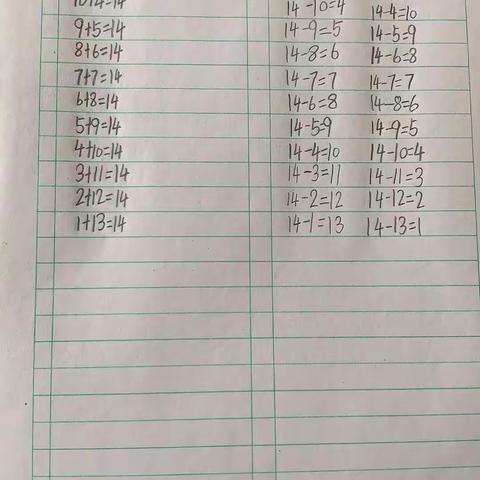 10+4=14 14-10=4 14-4=10
9+5=14 14-9=5 14-5=9
8+6=14 14-8=6 14-6=8
7+7=14 14-7=7 14-7=7
6+8=14 14-6=8 14-8=6
5+9=14 14-5=9 14-9=5
4+10=14 14-4=10 14-10=4
3+11=14 14-3=11 14-11=3
2+12=14 14-2=12 14-12=2
1+13=14 14-1=13 14-13=1